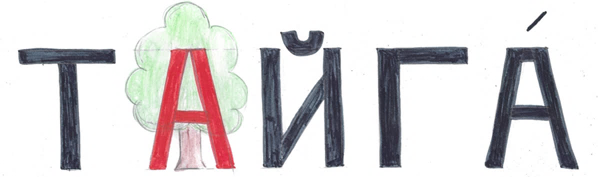 ТАЙГА́